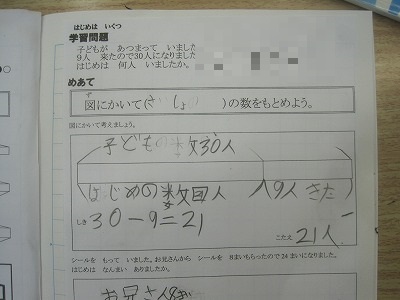 はじめは いくつ
学習問題
子どもが あつまって いました
9人 来たので30人になりました
はじめは 何人 いましたか。
めあて
図にかいて(さいしょ)の数をもとめよう。
図にかいて考えましょう。
子どもの数30人
はじめの数□人 9人 きた
しき 30-9=21
こたえ 21人
シールを もって いました。お兄さんから シールを 8まいもらったので24まいになりました。
はじめは なんまい ありましたか。
お兄さん8まい